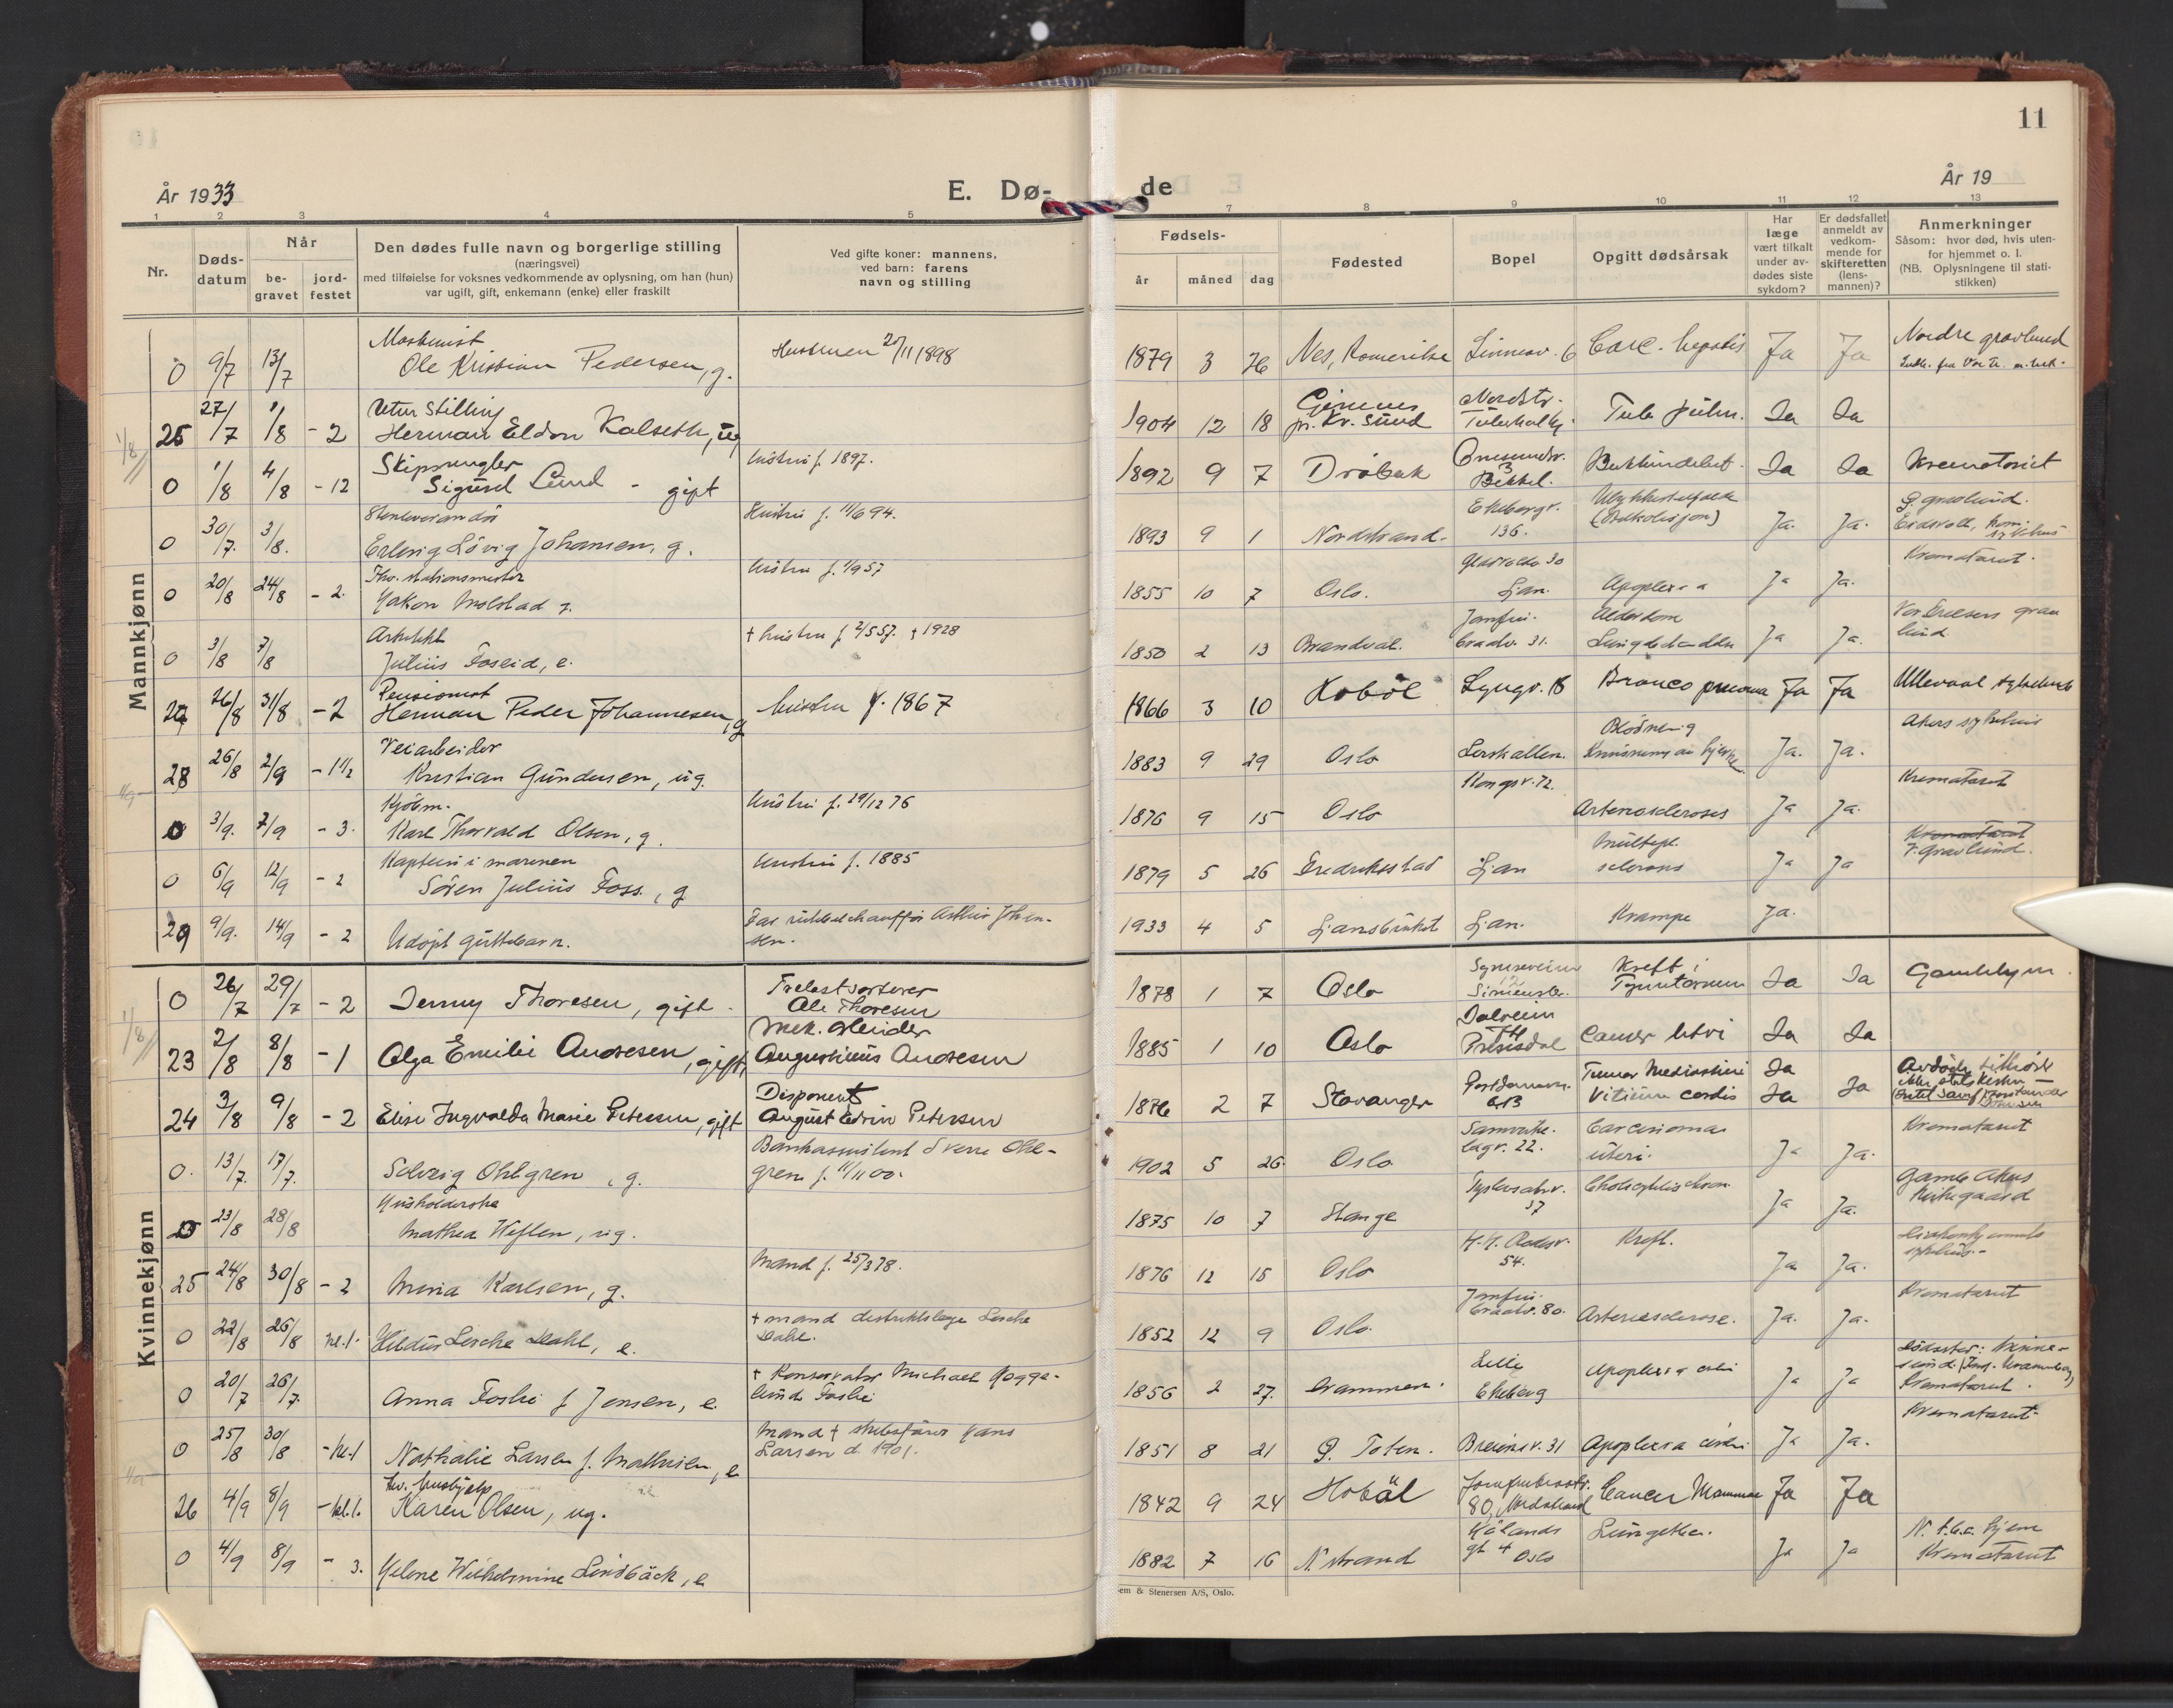 11
År 1933
E. Dø-
de
År 19
1 2 3 4 5 7 8 9 10 11 12 13
Nr.
Døds-
datum
Når
be-
gravet
jord-
festet
Den dødes fulle navn og borgerlige stilling
(næringsvei)
med tilføielse for voksnes vedkommende av oplysning, om han (hun)
var ugift, gift, enkemann (enke) eller fraskilt
Ved gifte koner: mannens,
ved barn: farens
navn og stilling
Fødsels-
år måned dag
Fødested
Bopel
Opgitt dødsårsak
Har
læge
vært tilkalt
under av-
dødes siste
sykdom?
Er dødsfallet
anmeldt av
vedkom-
mende for
skifteretten
(lens-
mannen)?
Anmerkninger
Såsom: hvor død, hvis uten-
for hjemmet o. l.
(NB. Oplysningene til stati-
stikken)
Mannkjønn
Maskinist
0 9/7 13/7 Ole Kristian Pedersen, g. Hustruen 27/11 1898 1879 3 26 Nes, Romerike 6 Carc. hepatis Ja Ja Nordre gravlund
Uten stilling
25 27/7 1/8 - 2 Herman Eldon Kalseth, ug. 1904 12 18 pr. Kr. Sund Tub. pulm. Ja Ja
1/8
Skipsmegler
0 1/8 4/8 - 12 Sigurd Lund - gift Hustru f. 1897. 1892 9 7 Dröbak 3 Bekkel. Ja Ja Krematoriet
0 30/7. 3/8. Erling Lövig Johansen, g. Hustru f. 11/6 94. 1893 9 1 Nordstrand. Ekebergv. 136. Ulykkestilfelde Ja. Ja. Ö. gravlund.
Eidsvoll, kom. sykehus
Fhv. stationsmester
0 20/8 24/8 - 2. Hakon Molstad g. Hustru f. 1/9 57 1855 10 7 Oslo. 30 Ljan. Apoplexia Ja Ja. Krematoriet.
Arkitekt
0 3/8 7/8 Julius Foseid, e. + hustru f. 2/5 57. + 1928 1850 2 13 Brandval. Jomfru-
braatv. 31. Alderdom Ja Ja. Vor Frelsers grav
lund
Pensionist
27 26/8 31/8 - 2 Herman Peder Johannesen, g. hustru f. 1867 1866 3 10 Hobøl Lyngv. 18 Ja Ja Ullevaal sykehus
Veiarbeider
28 26/8 2/9 - 11/2 Kristian Gundersen, ug. 1883 9 29 Oslo Lerskallen. Blödning Ja. Ja. Akers sykehus
Kjöbm.
0 3/9. 7/9 - 3. Karl Thorvald Olsen, g. Hustru f. 29/12 76 1876 9 15 Oslo Kongsv. 72. Arteriosclerosis Ja Ja. Krematoriet
Kaptein i marinen
0 6/9 12/9 - 2 Sören Julius Foss, g Hustru f. 1885 1879 5 26 Fredrikstad Ljan Multipl.
sclerose Ja Ja Krematoriet
V. gravlund.
29 9/9. 14/9 - 2 Udöpt guttebarn. Far rutebilchaufför Arthur Johan-
sen. 1933 4 5 Ljansbruket Ljan. Krampe Ja.
Kvinnekjønn
0 26/7 29/7 - 2 Jenny Thoresen, gift. Trelastsorterer
Ole Thoresen 1878 1 7 Oslo Kreft i Ja Ja Gamlebyen.
1/8
23 2/8 8/8 - 1 Olga Emilie Andresen, gift, Mek. arbeider
Augustinus Andresen 1885 1 10 Oslo Cancer uteri Ja Ja
24 3/8 9/8 - 2 Elise Ingvalda Marie Petersen, gift Disponent
August Edvin Petersen 1876 2 7 Stavanger Tumor Mediastini
Vitium cordis Ja Ja Ja
0. 13/7. 17/7. Solveig Ohlgren, g. Bankassistent Sverre Ohl-
gren f. 11/11 00. 1902 5 26. Oslo Samvirke-
lagv. 22. Carcinoma
uteri. Ja Ja. Krematoriet
Husholderske
0 23/8 28/8 Mathea Heflen, ug. 1875 10 7 Stange 37 Ja Ja. Gamle Akers
Kirkegaard
25 24/8 30/8 - 2 Mina Karlsen, g. Mand f. 25/3 78. 1876 12 15 Oslo 54. Kreft. Ja Ja.
0 22/8 26/8 kl. 1. Hildur Lesche Dahl, e. + mand distriktslege Lesche
Dahl. 1852 12 9 Oslo. Jomfru-
braatv. 80. Arteriesclerose. Ja. Ja. Krematoriet
0 20/7 26/7. Anna Foslie f Jensen, e. + Konservator Michael Hogge-
lund Foslie 1856 2 27. Drammen. Lille
Ekeberg Apoplexia cerebri Ja Ja Krematoriet.
0 25/8 30/8 - kl. 1 Nathalie Larsen f. Mathisen, e Mand + skibsförer Hans
Larsen d. 1901. 1851 8 21 Ö. Toten. Breiensv. 31 Apoplexia cerebri Ja Ja. Krematoriet.
26 4/9 8/9 - kl. 1. Karen Olsen, ug. 1842 9 24 Hobøl 80, Nordstrand Cancer Mammae Ja Ja
0 4/9 8/9 - 3. Helene Wilhelmine Lindbäck, e 1882 7 16 N.strand gt 4 Oslo Ja Ja N. t.b.c. hjem
Krematoriet
em & Stenersen A/S, Oslo.